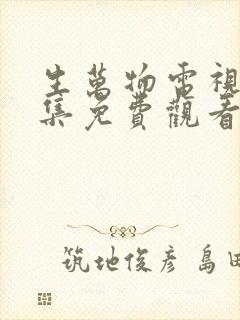 生萬物電視
集免費觀看
筑地俊彥 島田